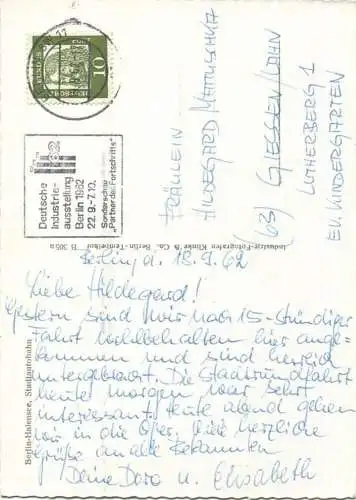 BUNDESPOST
10
Deutsche
Industrie-
ausstellung
Berlin 1962
22. 9. - 7. 10.
Sonderschau
„Partner des Fortschritts“
FRÄULEIN
HILDEGARD MATTUSCHKA
(63) GIESSEN/LAHN
LUTHERBERG 1
EV. KINDERGARTEN
Industrie-Fotografen Klinke & Co., Berlin-Tempelhof B 305 a
Berlin-Halensee, Stadtautobahn
Berlin, d. 18.9.62
Liebe Hildegard!
Gestern sind wir nach 15-stündiger
Fahrt wohlbehalten hier ange-
kommen und sind herrlich
untergebracht. Die Stadtrundfahrt
heute morgen war sehr
interessant. Heute abend gehen
wir in die Oper. Viele herzliche
Grüße an alle Bekannten
Deine Dora u. Elisabeth